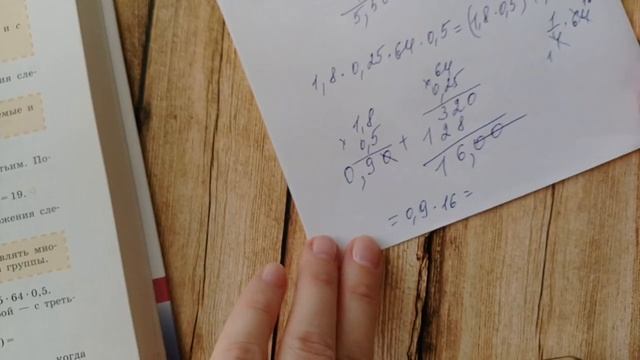 и с
ния сле-
емые и
тьим. По-
= 19.
ожения сле-
влять мно-
группы.
5 · 64 · 0,5.
рой — с треть-
) =
когда
5,50
1,8 · 0,25 · 64 · 0,5 = (1,8 · 0,5)
1/4 · 64
1
× 64
0,25
320
+ 128
16,00
× 1,8
0,5
0,90
= 0,9 · 16 =